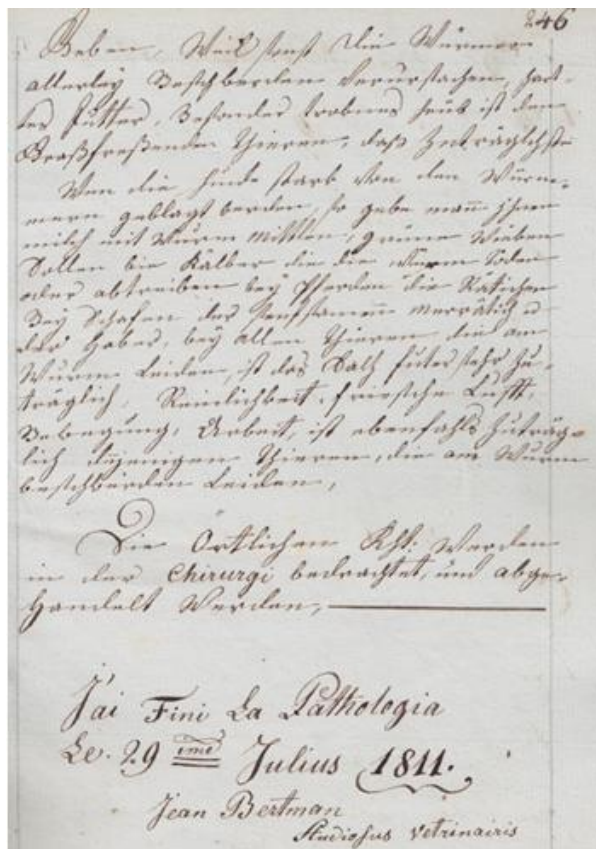 246
Geben, Weil sonst die Würmer
allerley Beschberden verursachen, hart-
tes futter, Besonder trokenes heub ist den
Graßfreßenden Thieren, daß Zuträglichste
Wen die hunde stark von den Würm-
mern geblagt berden, so gebe man jhnen
milch mit Wurm mittlen, grüne Wieben
Sollen bie Kälber die die Würm töden
oder abtreiben bey Pferden die
Bey Schafen der merrätich u
der haber, bey allen Thieren die am
Wurm Leiden, ist das Salh futer sehr Zu-
träglich, Reinlichkeit, friesche Lufft,
Bebegung, Arbeit, ist ebenfahls Zuträg-
lich dijenigen Thieren, die am Wurm
beschberden Leiden,
Die Örtlichen Kht: Werden
in der Chirurgi bedrachtet, und abge-
handelt Werden,
J'ai Fini La Pathologia
Le. 29 eme Julius 1811.
Jean Bertman
Studiosus vetrinairis